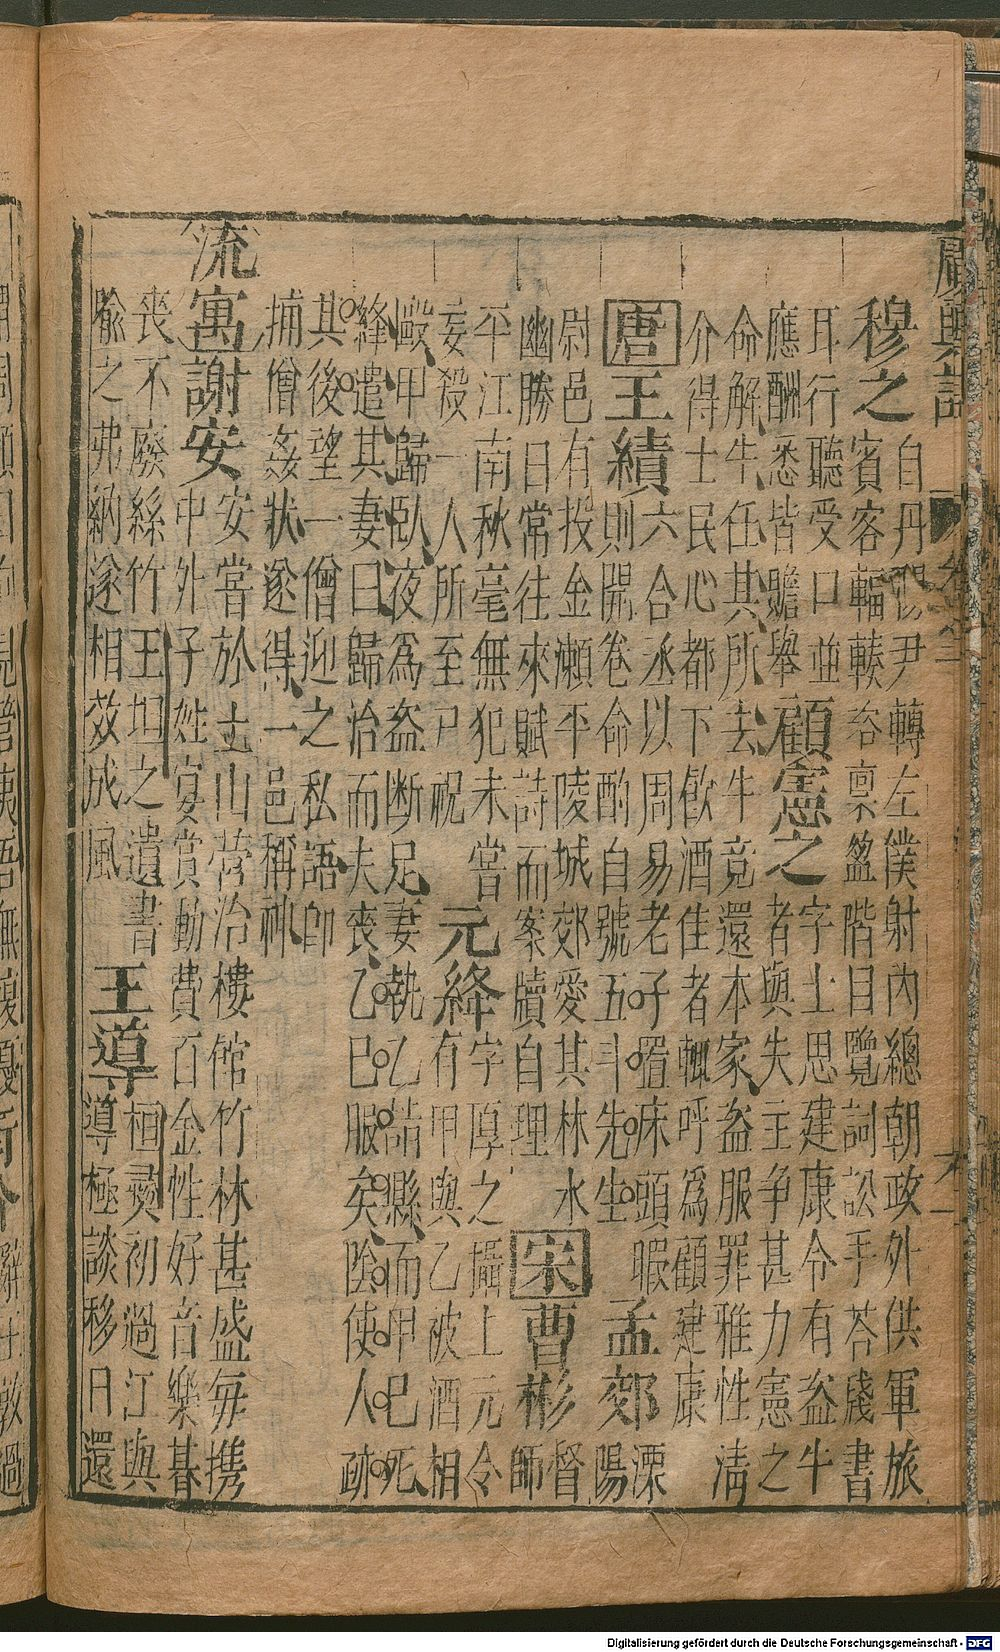 廣輿記
穆之
自丹陽尹轉左僕射內總朝政外供軍旅
賓客輻輳咨稟盈階目覽詞訟手荅牋書
耳行聽受口並
應酬悉皆贍舉
顧憲之
字士思建康令有盜牛
者與失主争甚力憲之
命解牛任其所去牛竟還本家盜服罪雅性清
介得士民心都下飲酒佳者輒呼為顧建康
唐王績
六合丞以周易老子置床頭暇
則開卷命酌自號五斗先生
孟郊
溧
陽
尉邑有投金瀨平陵城郊愛其林水
幽勝日常往來賦詩而案牘自理
宋曹彬
督
師
平江南秋毫無犯未嘗
妄殺一人所至戸祝
元絳
字厚之攝上元令
有甲與乙被酒相
毆甲歸臥夜為盜断足妻執乙詣縣而甲已死
絳遣其妻曰歸治而夫喪乙已服矣陰使人疏
其後望一僧迎之私語即
捕僧姦狀遂得一邑稱神
流寓謝安
安嘗於土山營治樓館竹林甚盛每携
中外子姓宴賞動費百金性好音樂朞
喪不廢絲竹王坦之遺書
喻之弗納遂相效成風
王導
桓彞初過江與
導極談移日還
Digitalisierung gefördert durch die Deutsche Forschungsgemeinschaft - DFG